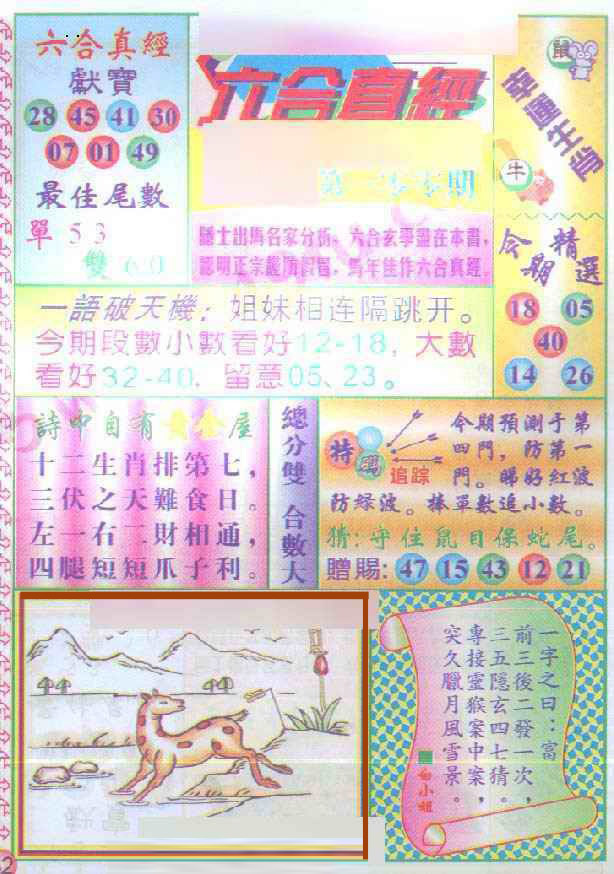 六合真經
獻寶
28 45 41 30
07 01 49
最佳尾數
單 53
雙 60
六合真經
第一零零期
隱士出馬名家分析，六合玄學盡在本書，
認明正宗嚴防假冒，馬年佳作六合真經。
鼠
幸運生肖
牛
今期
精選
18 05
40
14 26
一語破天機：姐妹相连隔跳开。
今期段數小數看好12-18，大數
看好32-40，留意05、23。
詩中自有黃金屋
十二生肖排第七，
三伏之天難食日。
左一右二財相通，
四腿短短爪子利。
總分雙 合數大
特碼
追踪
今期預測于第
四門，防第一
門。睇好紅波
防緑波。棒單數追小數。
猜：守住鼠目保蛇尾。
贈賜：47 15 43 12 21
一字之曰：富
前三後二發一次，
三五隱玄四七猜。
專接靈猴案中案，
突久臘月風雪景。
白小姐